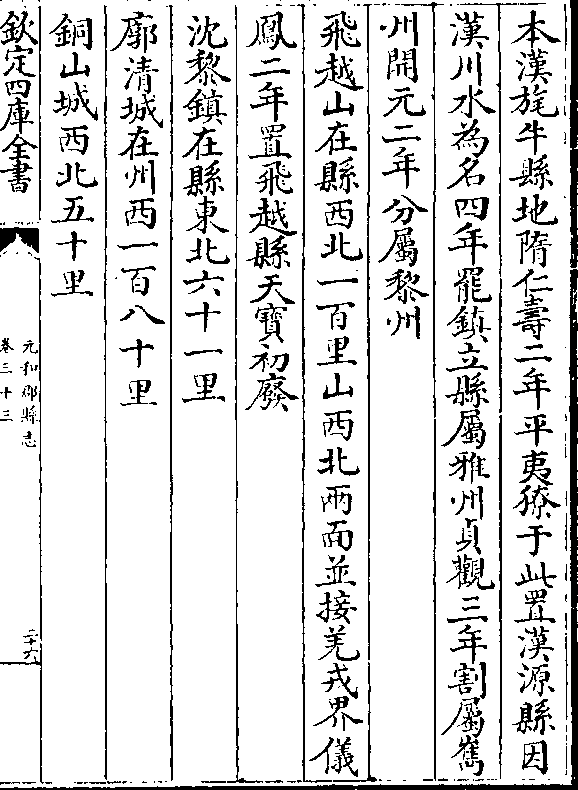 本漢旄牛縣地隋仁壽二年平夷獠于此置漢源縣因
漢川水為名四年罷鎮立縣屬雅州貞觀三年割屬雟
州開元二年分屬黎州
飛越山在縣西北一百里山西北兩面並接羌戎界儀
鳳二年置飛越縣天寶初廢
沈黎鎮在縣東北六十一里
廓清城在州西一百八十里
銅山城西北五十里
欽定四庫全書
元和郡縣志
卷三十三
二十六